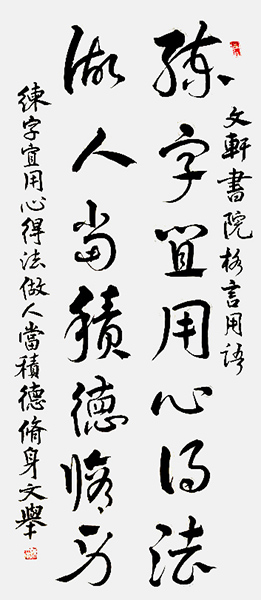 文軒書院格言用語
練字宜用心得法
做人當積德脩身
練字宜用心得法做人當積德脩身文舉